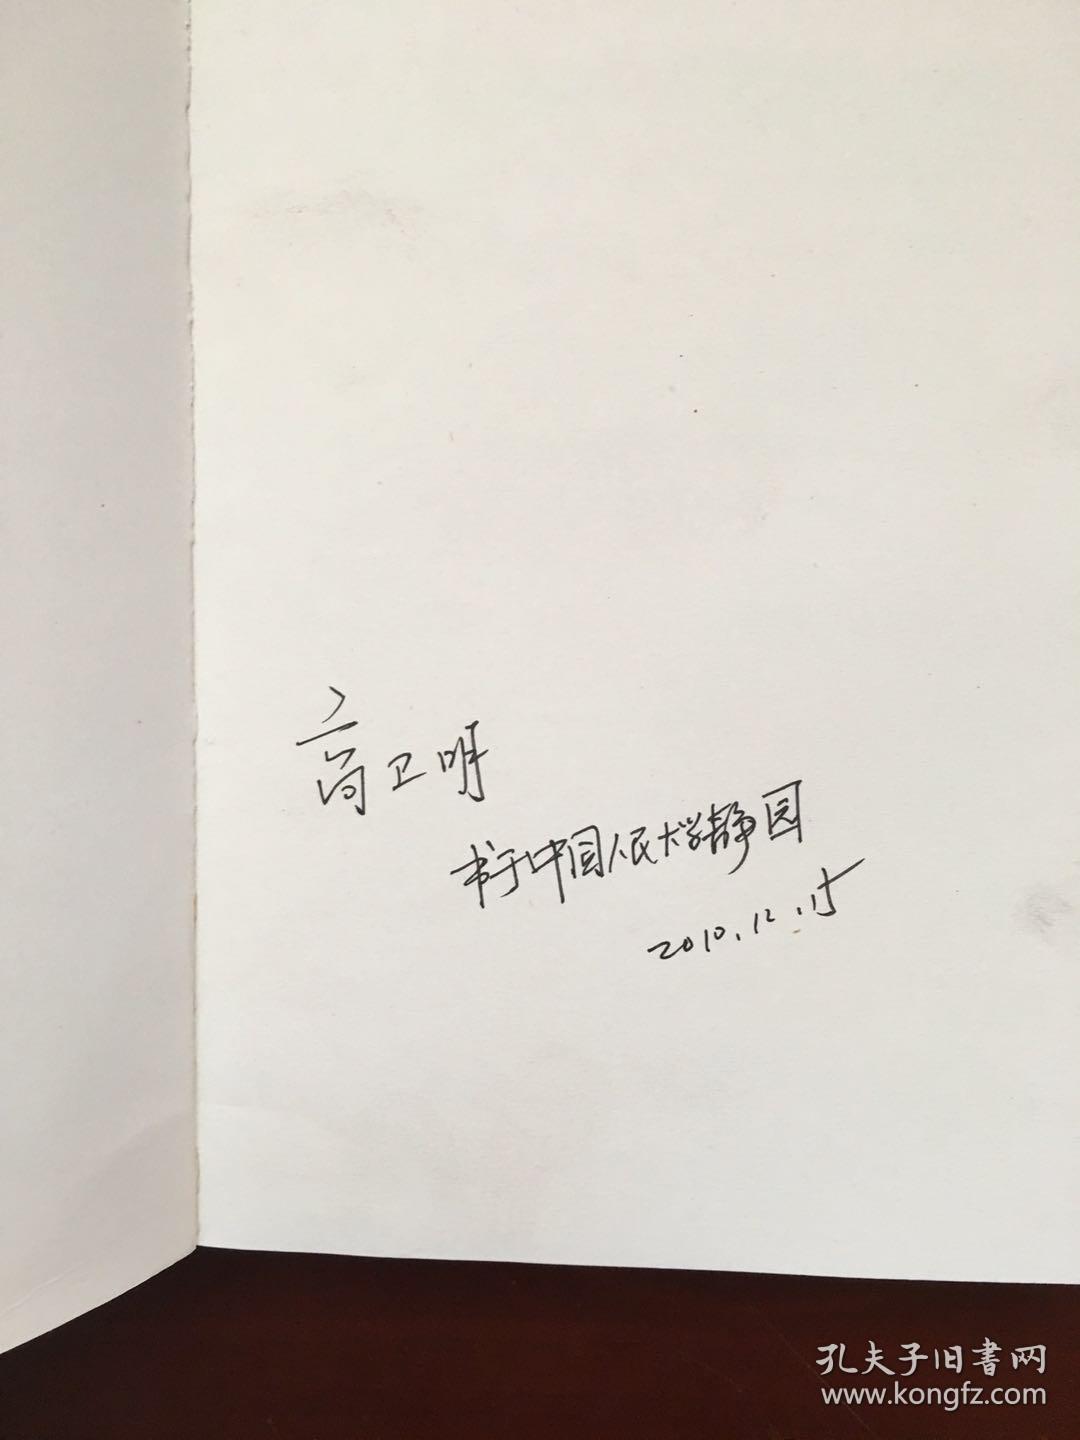 高卫明
书于中国人民大学静园
2010.12.15
孔夫子旧書网
www.kongfz.com